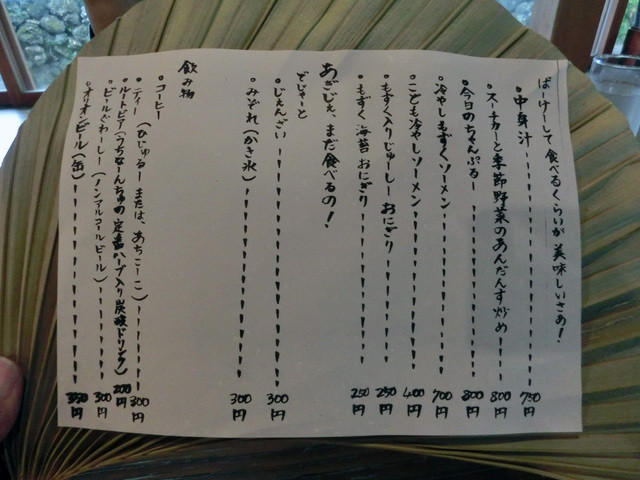 ばーけーして食べるくらいが美味しいさぁ!
◦中身汁------750円
◦スーチカーと季節野菜のあんだんす炒め---800円
◦今日のちゃんぷるー------800円
◦冷やしもずくソーメン------700円
◦こども冷やしソーメン------400円
◦もずく入りじゅーしーおにぎり------250円
◦もずく海苔おにぎり------250円
あぎじぇ、まだ食べるの!
でじゃーと
◦じぇんざい------300円
◦みぞれ(かき氷)------300円
飲み物
◦コーヒー
◦ティー(ひじゅるーまたは、あちこーこ)------300円
◦ルートビア(うちなーんちゅの定番ハーブ入り炭酸ドリンク)200円
◦ビールぐわーしー(ノンアルコールビール)------300円
◦オリオンビール(缶)------350円